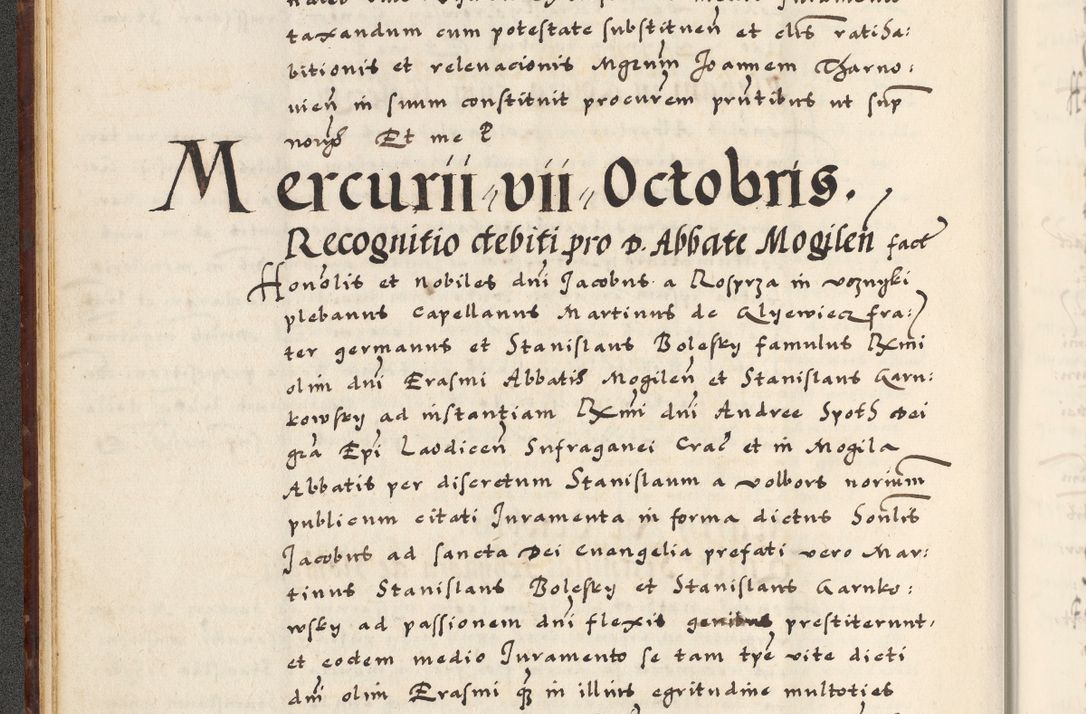 taxandum cum potestate substituen̄ et clīs ratiha:
bitionis et relevacionis Mgr̄um Joannem Tharno:
vien̄ in suum constituit procurem̄ pn̄tibus ut sup̄
Et me
Mercurii vii Octobris.
Recognitio debiti pro D. Abbate Mogilen̄ fact
Honōlis et Nobiles dn̄i Jacobus a Rosprza in voznyki
plebanus Capellanus Martinus de Glyewiecz fra:
ter germanus et Stanislaus Bolesky famulus Rx̄mi
olim dn̄i Erasmi Abbatis Mogilen̄ et Stanislaus Garn:
kowsky ad instantiam Rx̄mi dn̄i Andree Spoth Dei
grā Epī Laodicen̄ Suffraganei Crac̄ et in Mogila
Abbatis per discretum Stanislaum a Volbors norium̄
publicum citati Juramenta in forma dictus Honl̄is
Jacobus ad sancta Dei Euangelia prefati vero Mar:
tinus Stanislaus Bolesky et Stanislaus Garnko:
wsky ad passionem dn̄i flexis genibus prestiterunt.
et eodem medio Juramento se tam tpē vite dicti
dn̄i olim Erasmi q̄ in illius egritudine multoties